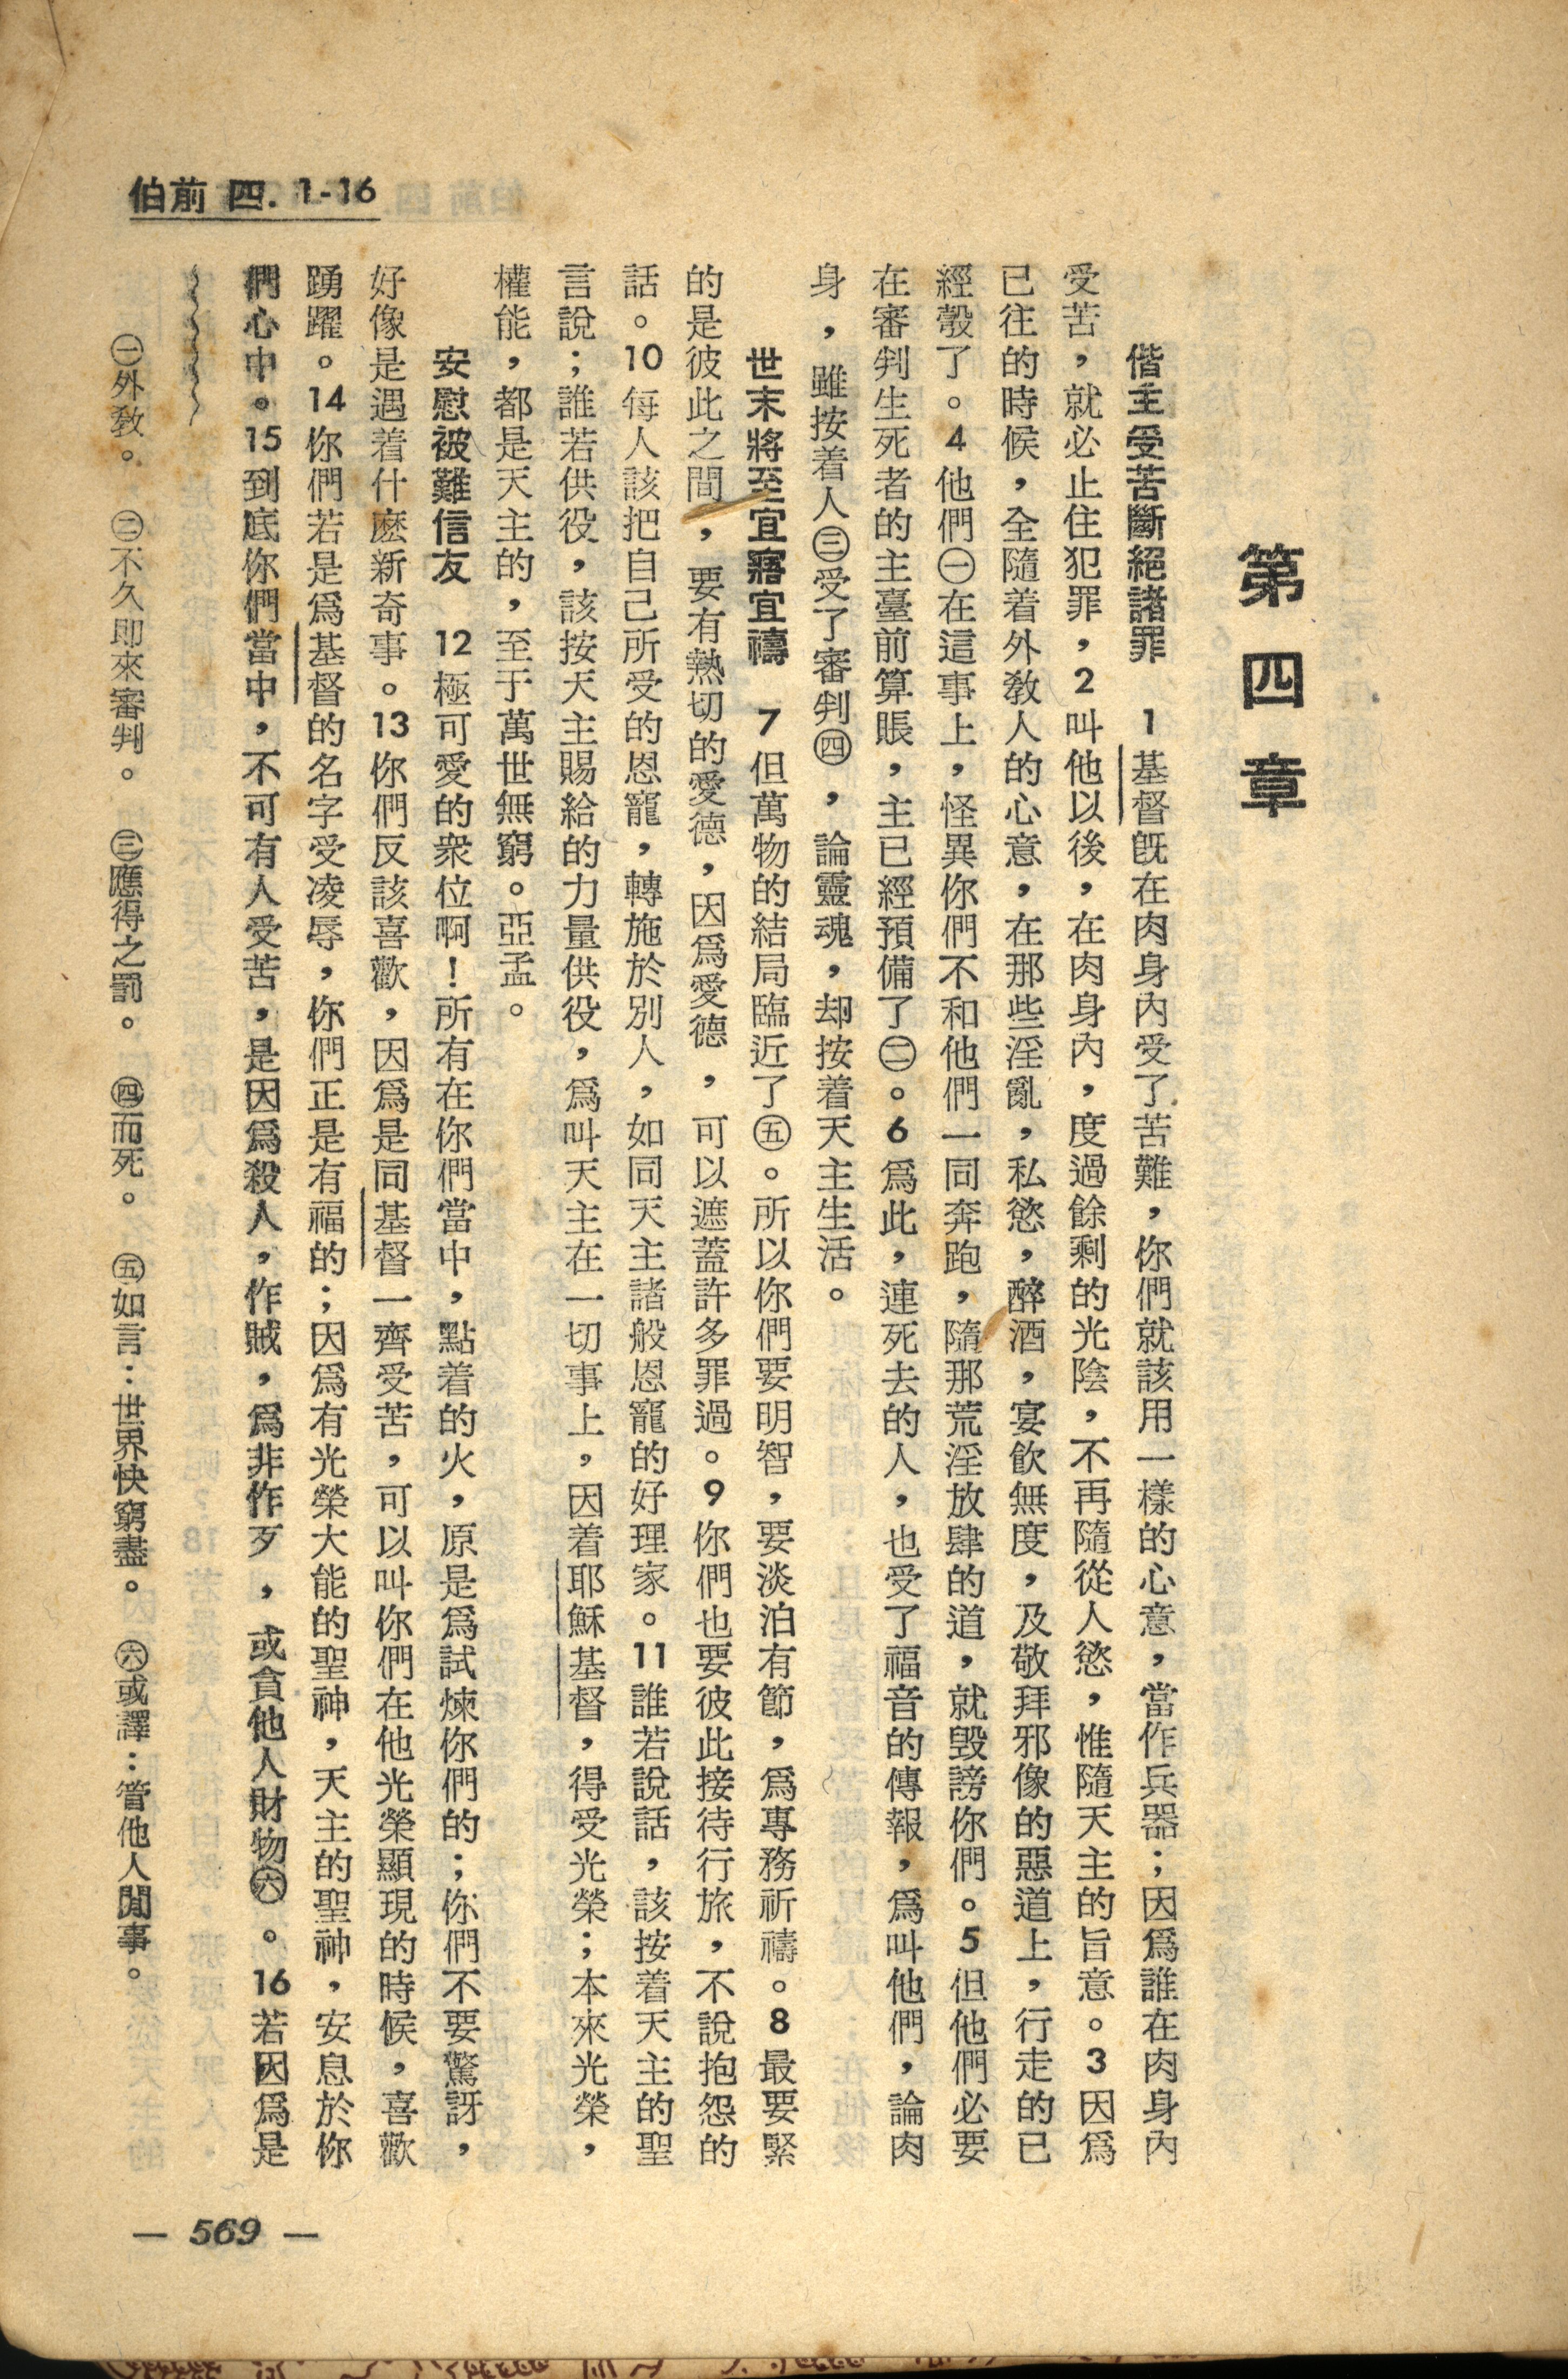 伯前 四. 1-16
第四章
偕主受苦斷絕諸罪　1基督既在肉身內受了苦難，你們就該用一樣的心意，當作兵器；因爲誰在肉身內
受苦，就必止住犯罪，2叫他以後，在肉身內，度過餘剩的光陰，不再隨從人慾，惟隨天主的旨意。3因爲
已往的時候，全隨着外敎人的心意，在那些淫亂，私慾，醉酒，宴飲無度，及敬拜邪像的惡道上，行走的已
經彀了。4他們㊀在這事上，怪異你們不和他們一同奔跑，隨那荒淫放肆的道，就毀謗你們。5但他們必要
在審判生死者的主臺前算賬，主已經預備了㊁。6爲此，連死去的人，也受了福音的傳報，爲叫他們，論肉
身，雖按着人㊂受了審判㊃，論靈魂，却按着天主生活。
世末將至宜寤宜禱　7但萬物的結局臨近了㊄。所以你們要明智，要淡泊有節，爲專務祈禱。8最要緊
的是彼此之間，要有熱切的愛德，因爲愛德，可以遮蓋許多罪過。9你們也要彼此接待行旅，不說抱怨的
話。10每人該把自己所受的恩寵，轉施於別人，如同天主諸般恩寵的好理家。11誰若說話，該按着天主的聖
言說；誰若供役，該按天主賜給的力量供役，爲叫天主在一切事上，因着耶穌基督，得受光榮；本來光榮，
權能，都是天主的，至于萬世無窮。亞孟。
安慰被難信友　12極可愛的衆位啊！所有在你們當中，點着的火，原是爲試煉你們的；你們不要驚訝，
好像是遇着什麽新奇事。13你們反該喜歡，因爲是同基督一齊受苦，可以叫你們在他光榮顯現的時候，喜歡
踴躍。14你們若是爲基督的名字受凌辱，你們正是有福的；因爲有光榮大能的聖神，天主的聖神，安息於你
們心中。15到底你們當中，不可有人受苦，是因爲殺人，作賊，爲非作歹，或貪他人財物㊅。16若因爲是
㊀外敎。　㊁不久即來審判。　㊂應得之罰。　㊃而死。　㊄如言：世界快窮盡。　㊅或譯：管他人閒事。
— 569 —